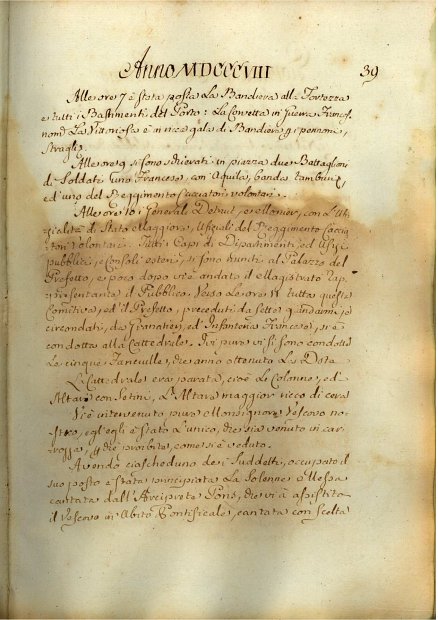 Anno MDCCCVIII 39
Alle ore 7 è stata posta La Bandiera alla Fortezza
e tutti i Bastimenti del Porto: La Corvetta in Guerra
e' in ricca gala di Bandiere, e pennoni,
Alle ore 9 si sono schierati in piazza due Battaglioni
di Soldati, uno Francese, con Aquila, banda,
ed' uno del Reggimento Cacciatori volontari.
Alle ore 10 i Generali con L'
di Stato Maggiore, del Reggimento
volontari. Tutti i Capi di Dipartimenti, ed
pubblici, e Consoli esteri, si sono riuniti al Palazzo del
Prefetto, e poco dopo vi è andato il Magistrato
il Pubblico. Verso Le ore 11 tutta questa
Comitiva, ed' il Prefetto, preceduti da e
circondati, da Granatieri, ed' Infanteria Francese, si è
condotta alla Cattedrale. Ivi pure vi si sono condotte
Le cinque Fanciulle, che anno ottenuta La Dote
La Cattedrale era parata, cioè Le Colonne, ed'
Altari con Setini, L'Altare maggior ricco di cera
Vi è intervenuto pure Monsignore Vescovo no-
stro, ed egli è stato L'unico, che sia venuto in car-
rozza, proibite, come si è veduto.
Avendo ciascheduno de' Suddetti, occupato il
suo posto è stata principiata La Solenne Messa
cantata dall' Arciprete Pons, che vi à assistito
il Vescovo in Abito Pontificale, cantata con scelta